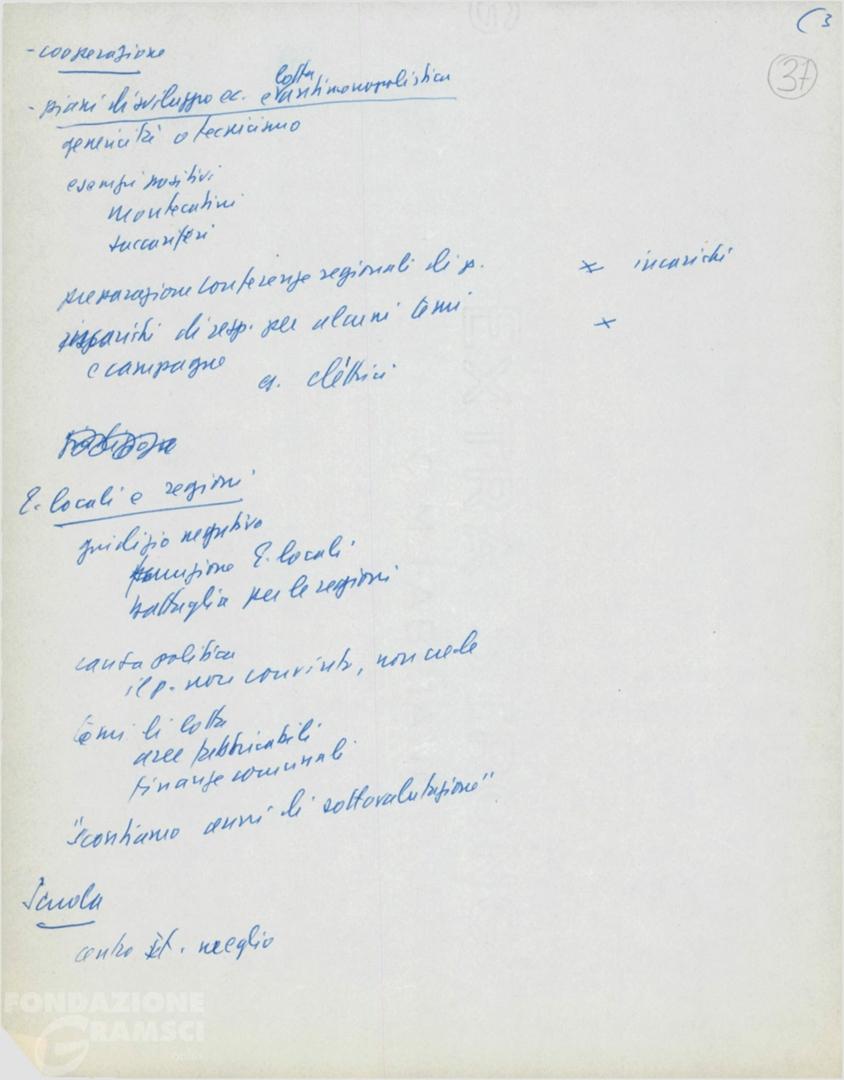 (3
37
- cooperazione
- piani di sviluppo ec. e lotta antimonopolistica
genericità o tecnicismo
esempi positivi
Montecatini
saccariferi
preparazione conferenze regionali di p. x incarichi
incarichi di resp. per alcuni temi x
e campagne
es. elettrici
E. locali e regioni
giudizio negativo
funzione E. locali
battaglia per le regioni
causa politica
il p. non convinto, non crede
temi di lotta
aree fabbricabili
finanze comunali
"scontiamo anni di sottovalutazione"
Scuola
centro meglio
FONDAZIONE
GRAMSCI